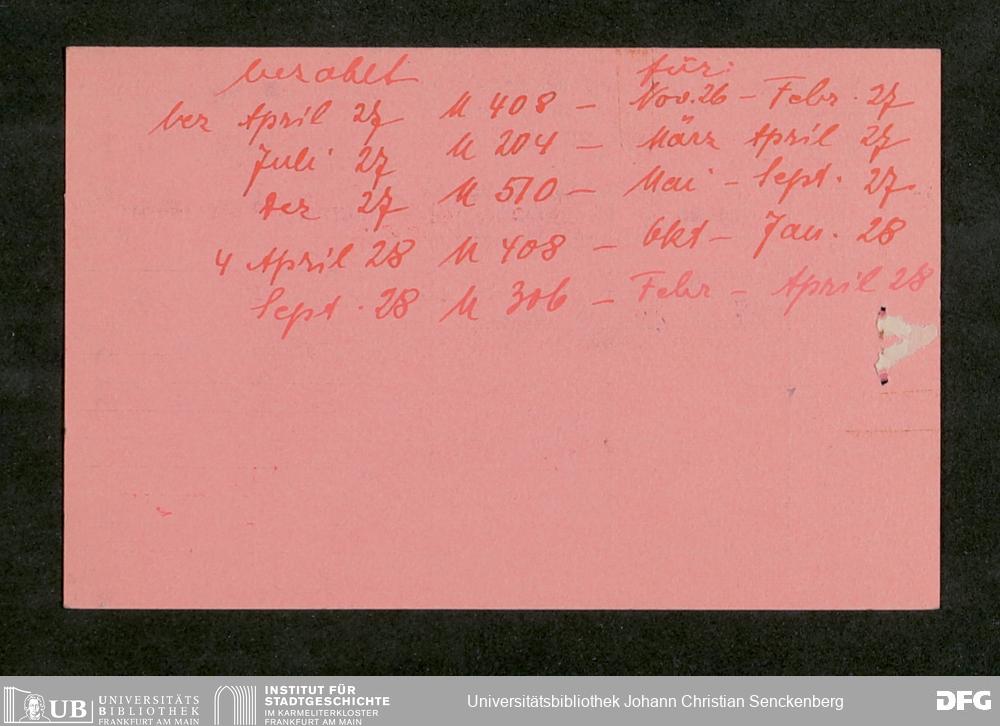 bezahlt für:
bez April 27 M 408 – Nov. 26 – Febr. 27
Juli 27 M 204 – März April 27
Dez 27 M 510 – Mai – Sept. 27.
4 April 28 M 408 – Okt – Jan. 28
Sept. 28 M 306 – Febr – April 28
UB UNIVERSITÄTS
BIBLIOTHEK
FRANKFURT AM MAIN
INSTITUT FÜR
STADTGESCHICHTE
IM KARMELITERKLOSTER
FRANKFURT AM MAIN
Universitätsbibliothek Johann Christian Senckenberg
DFG